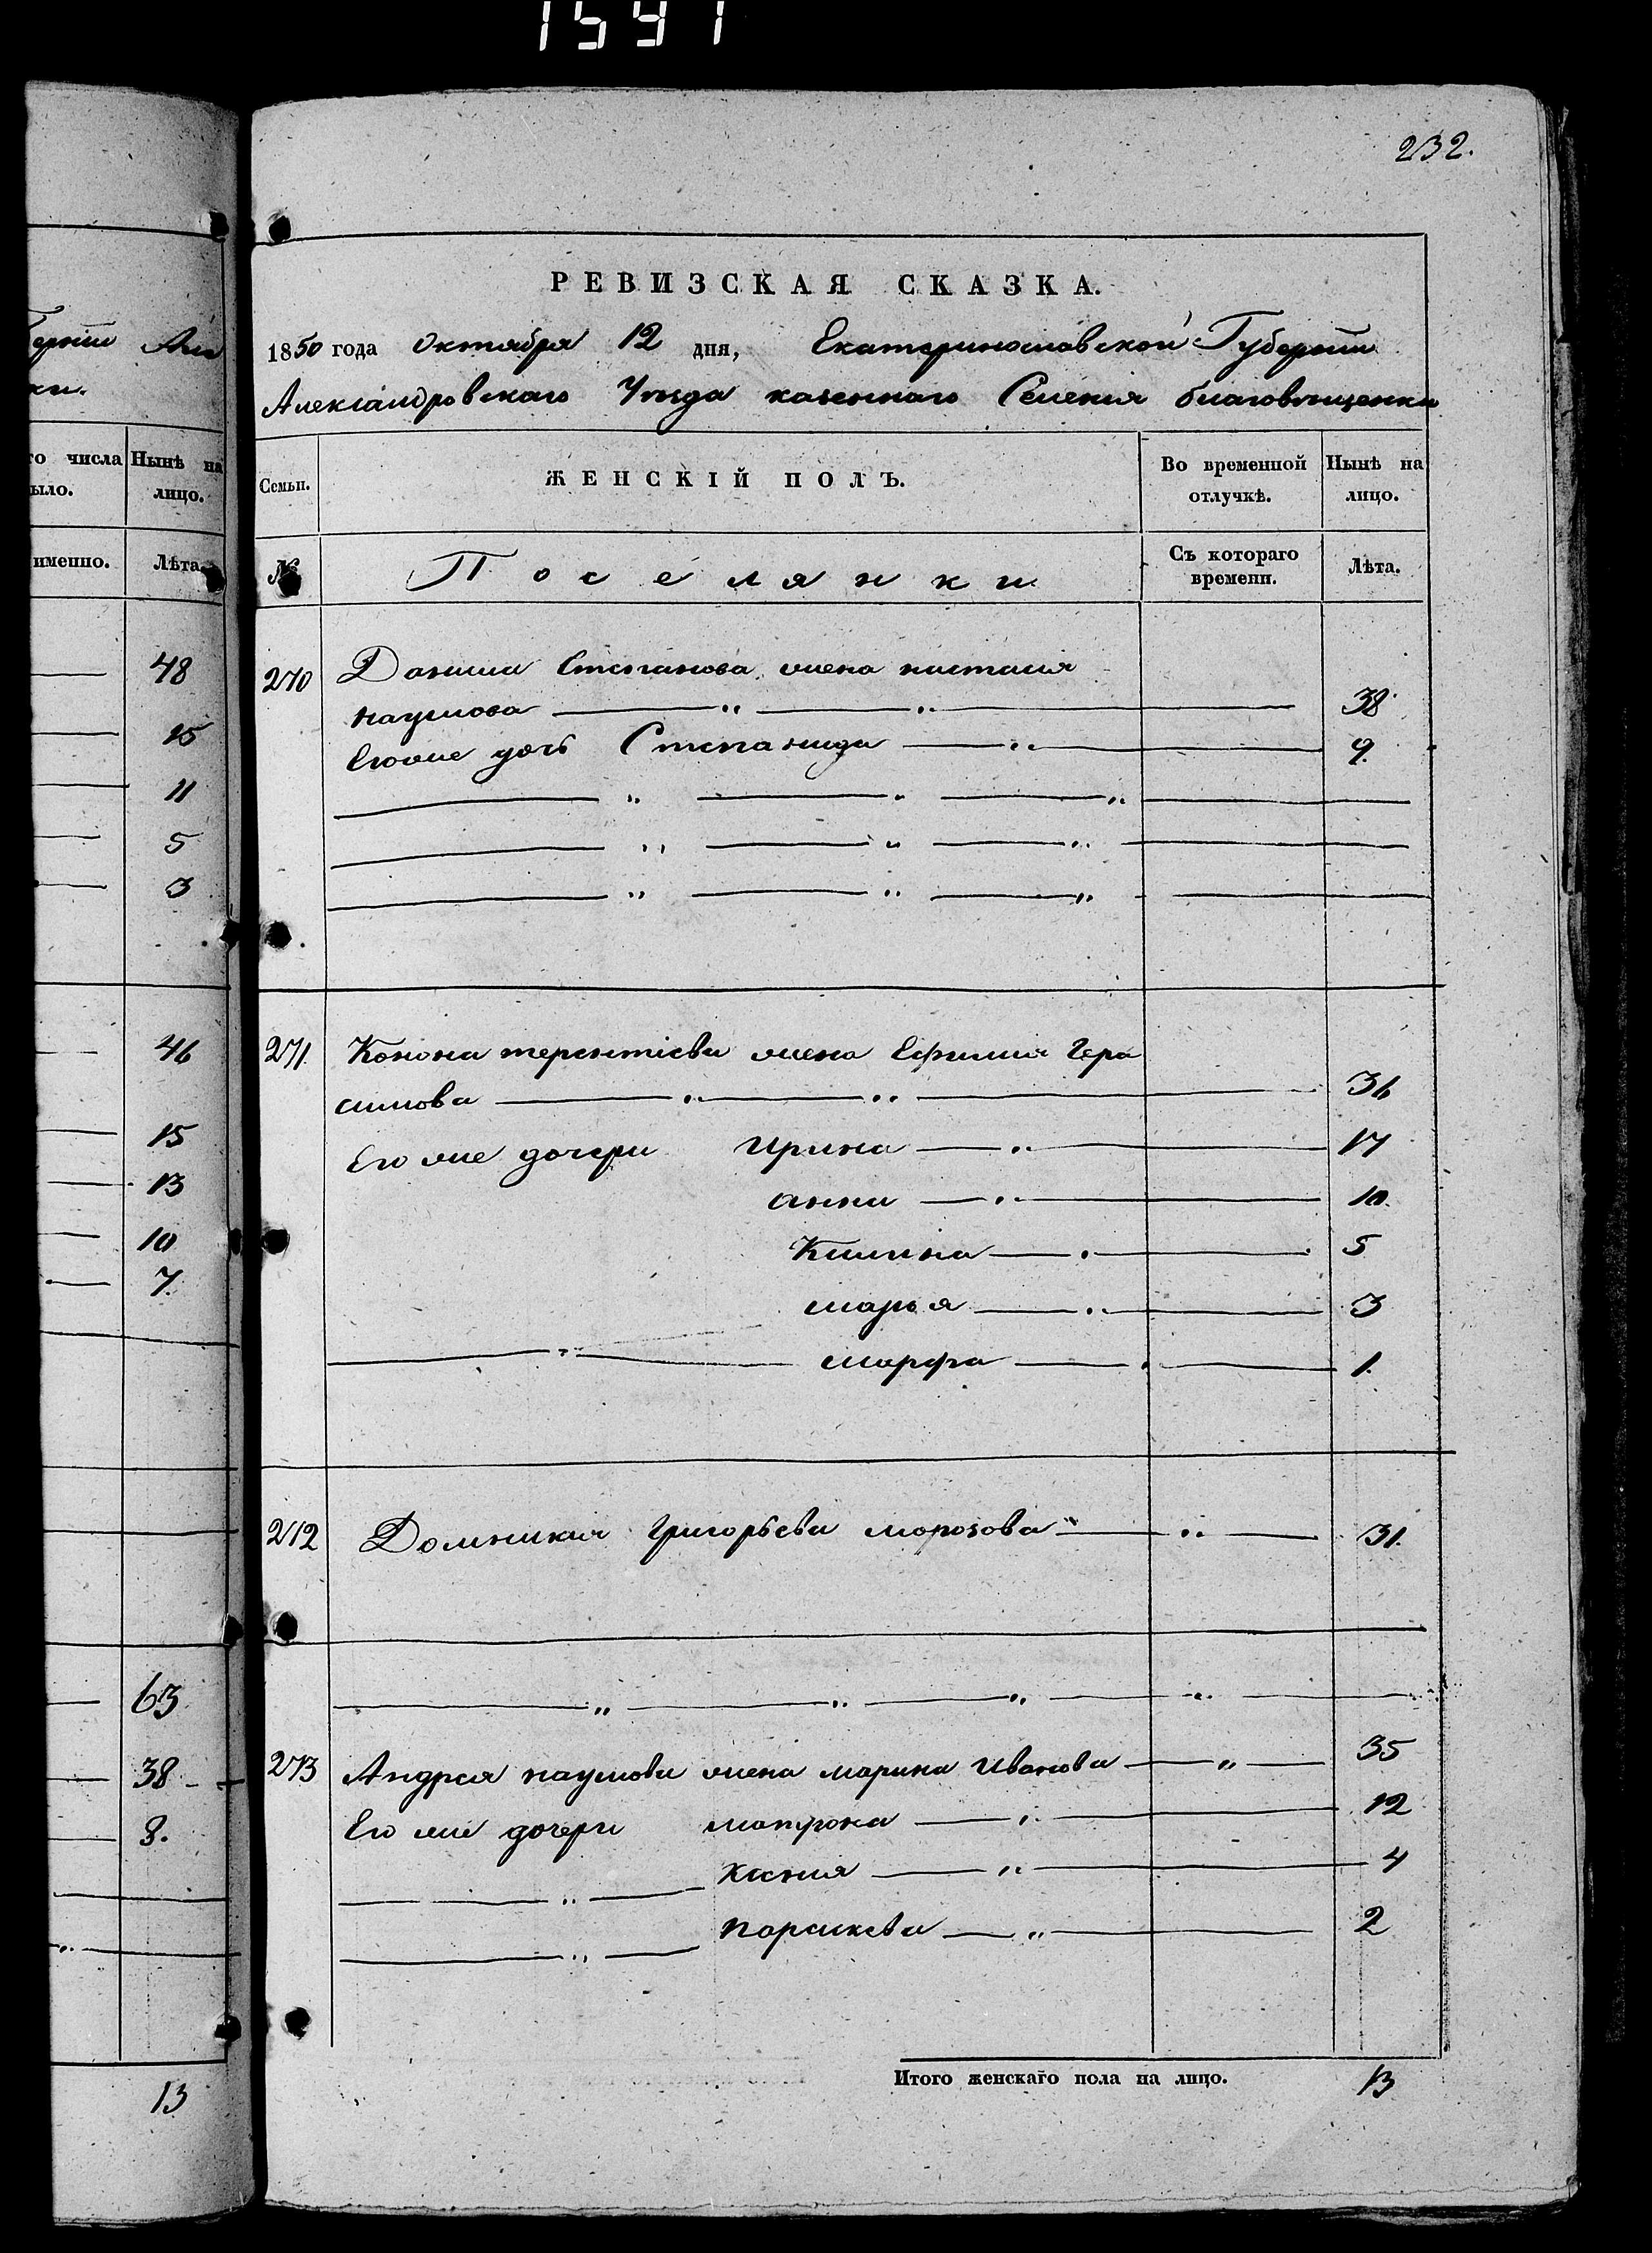 1591
232.
РЕВИЗСКАЯ СКАЗКА.
1850 года Октября 12 дня, Екатеринославской Губернии
Александровскаго Уѣзда казеннаго Селения благовѣщенки
Семьи. ЖЕНСКІЙ ПОЛЪ. Во временной отлучкѣ. Нынѣ на лицо.
№ Поселянки Съ котораго времени. Лѣта.
270 Данила Степанова жена настасия
наумова 38
Егоже дочь Степанида 9.
271. Конона терентиева жена Ефимия Гера
симова 36
Его же дочери Ирина 17
анна 10.
Килина 5
марья 3
марфа 1.
272 Домникия григорьева морозова 31.
273 Андрея наумова жена марина Иванова 35
Его же дочери матрона 12
Ксения 4
парасковя 2
Итого женскаго пола на лицо. 13
го числа Нынѣ на
было. лицо.
именно. Лѣта.
48
15
11
5
3
46
15
13
10
7.
63
38
8.
13